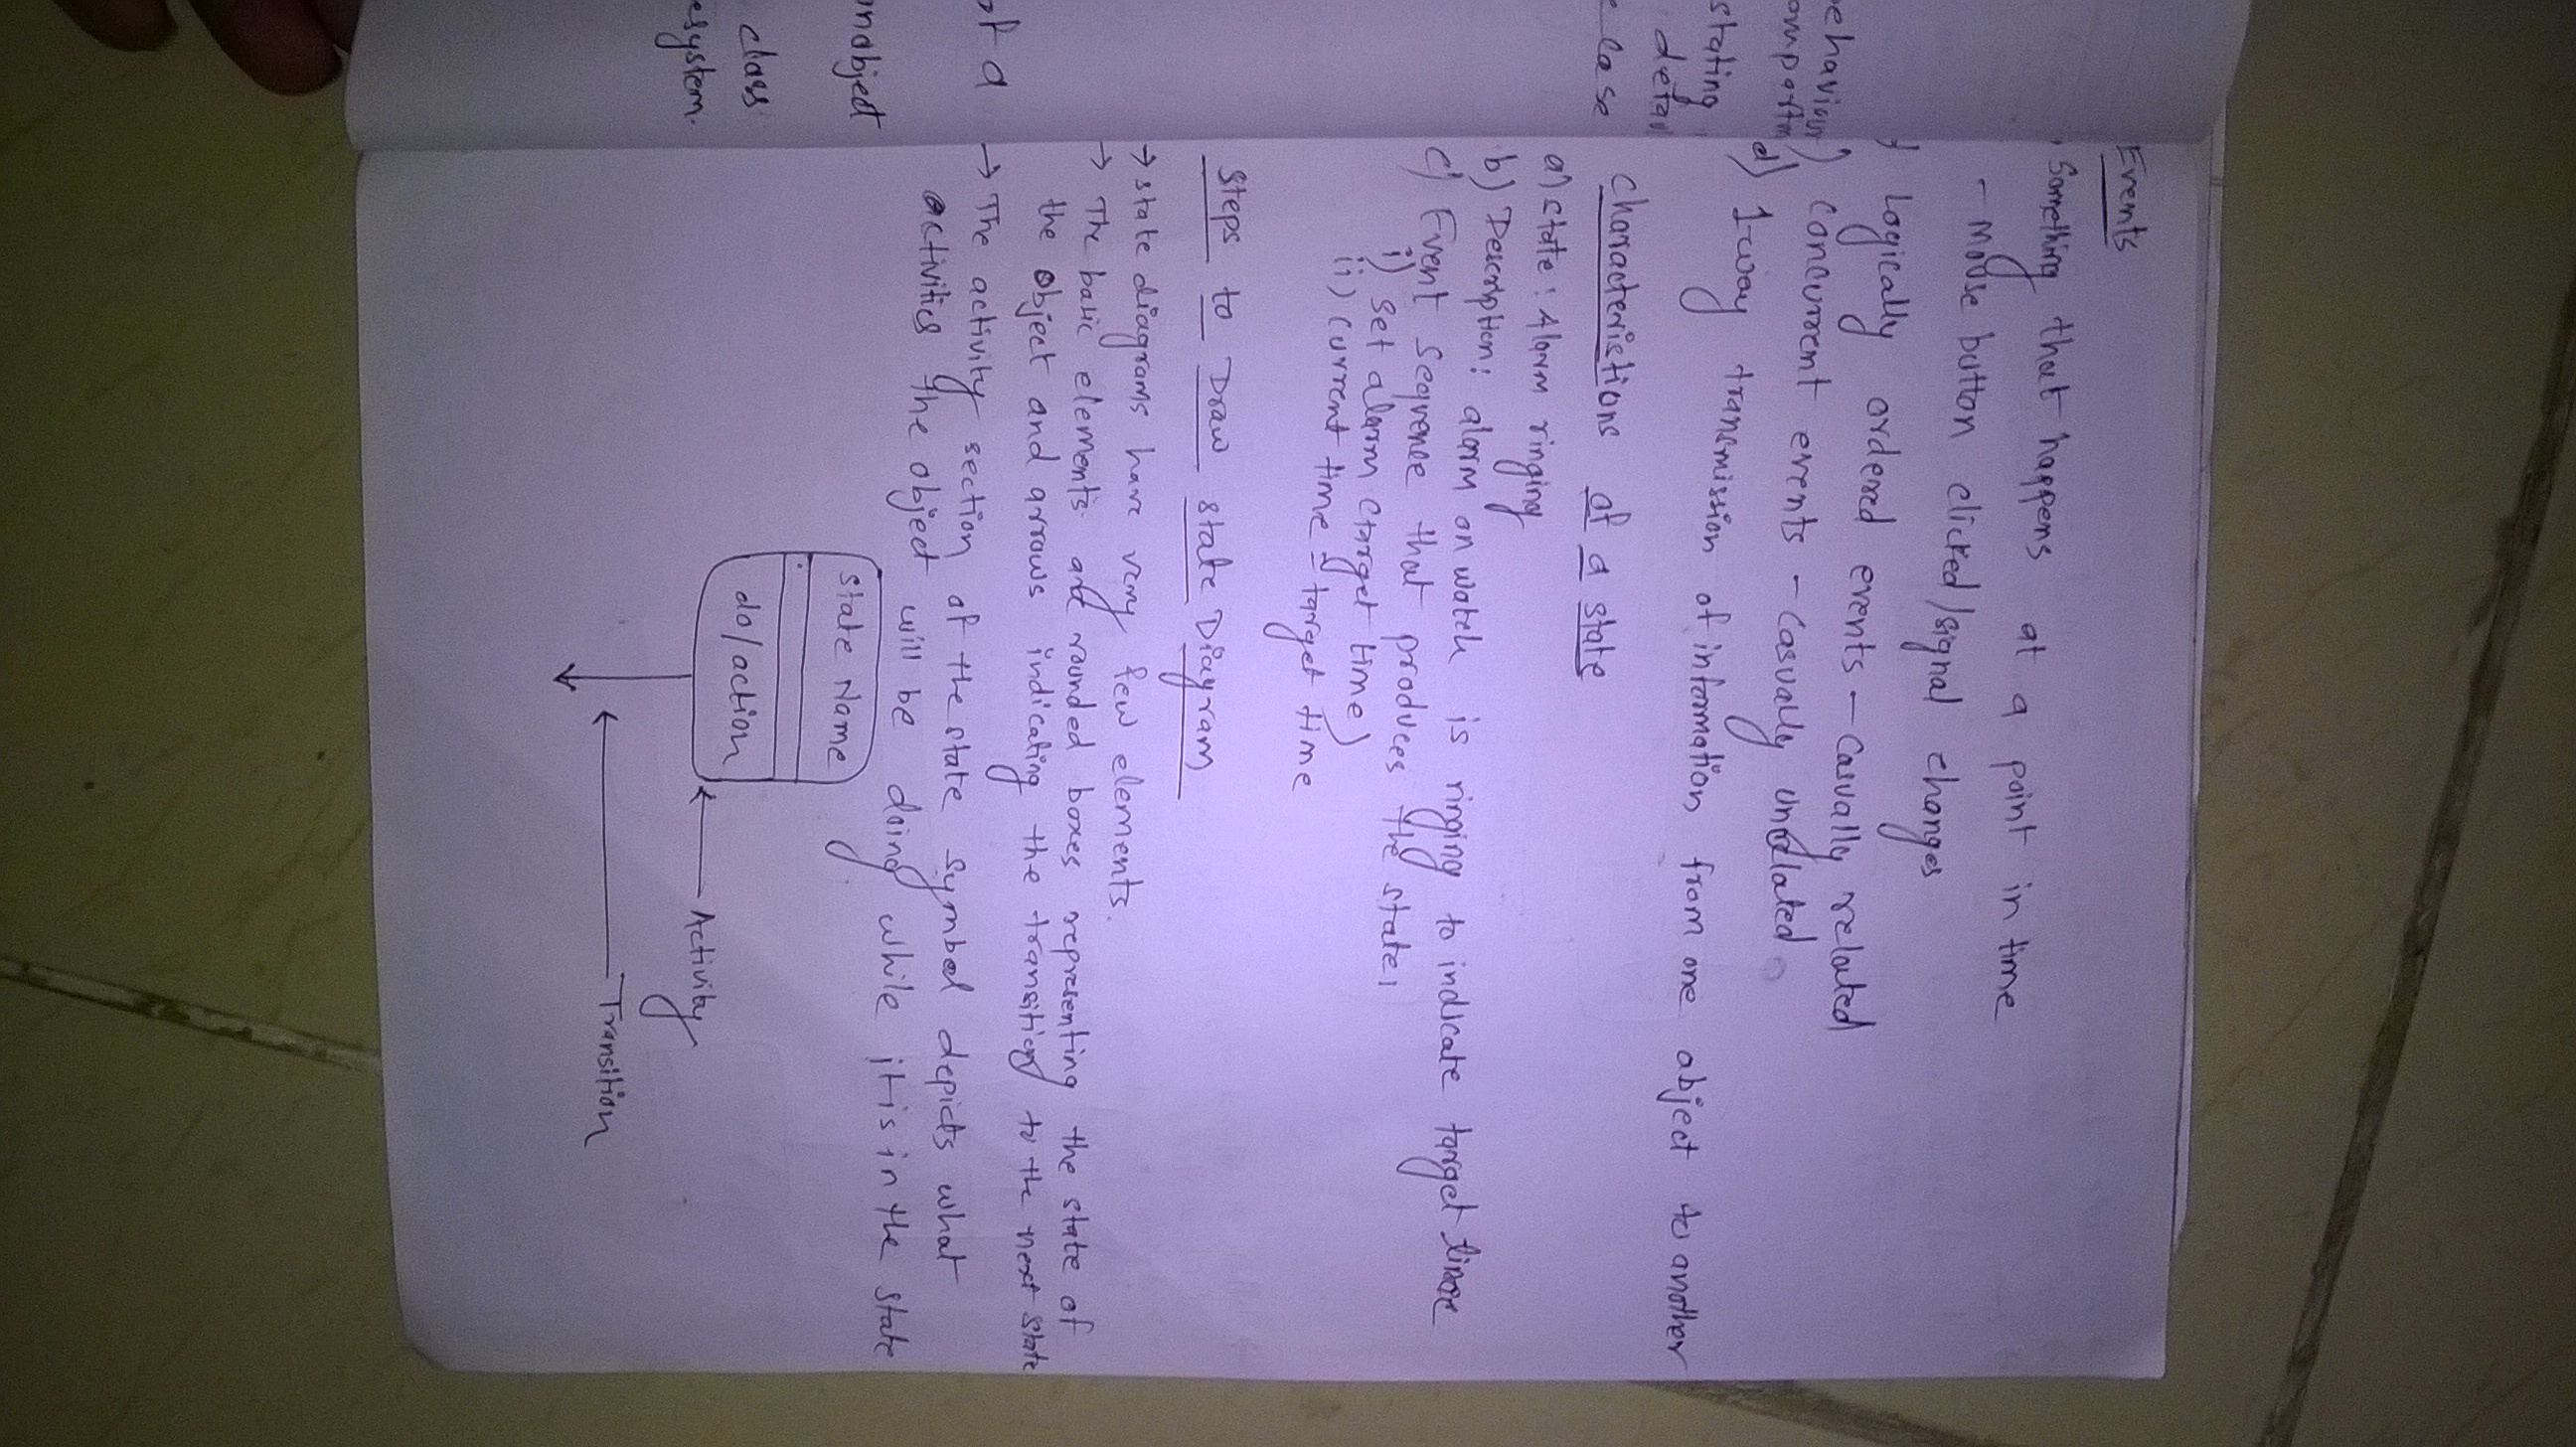 Events
Something that happens at a point in time
- mouse button clicked/signal changes
) Logically ordered events - Casually related
) Concurrent events - Casually unrelated
d) 1-way transmission of information from one object to another
Characteristions of a state
a) State: Alarm ringing
b) Description: alarm on watch is ringing to indicate target time
c) Event Sequence that produces the state:
i) Set alarm (target time)
ii) Current time = target time
Steps to Draw State Diagram
→ State diagrams have very few elements.
→ The basic elements are rounded boxes representing the state of
the object and arrows indicating the transitions to the next state
→ The activity section of the state symbol depicts what
activities the object will be doing while it is in the state
State Name
do/action
Activity
Transition
ehaviour
stating
e case
of a
class
esystem.